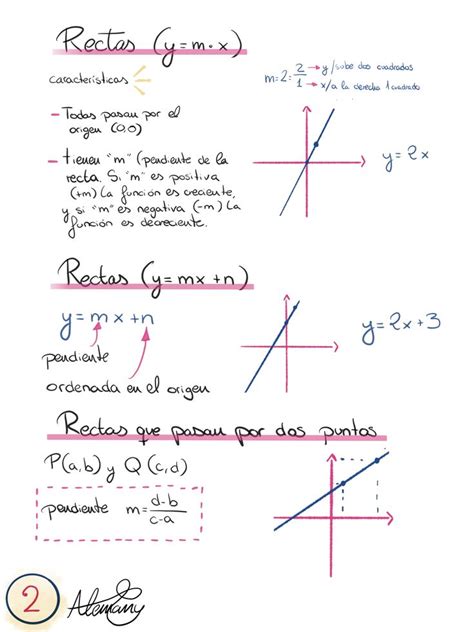 Rectas (y=m·x)
características
m=2=2/1 → y/sube dos cuadrados
→ x/a la derecha 1 cuadrado
- Todas pasan por el
origen (0,0)
- tienen "m" (pendiente de la
recta. Si "m" es positiva
(+m) la función es creciente,
y si "m" es negativa (-m) la
función es decreciente.
y=2x
Rectas (y=mx+n)
y=mx+n
pendiente
ordenada en el origen
y=2x+3
Rectas que pasan por dos puntos
P(a,b) y Q(c,d)
pendiente m=d-b/c-a
2 Alemany